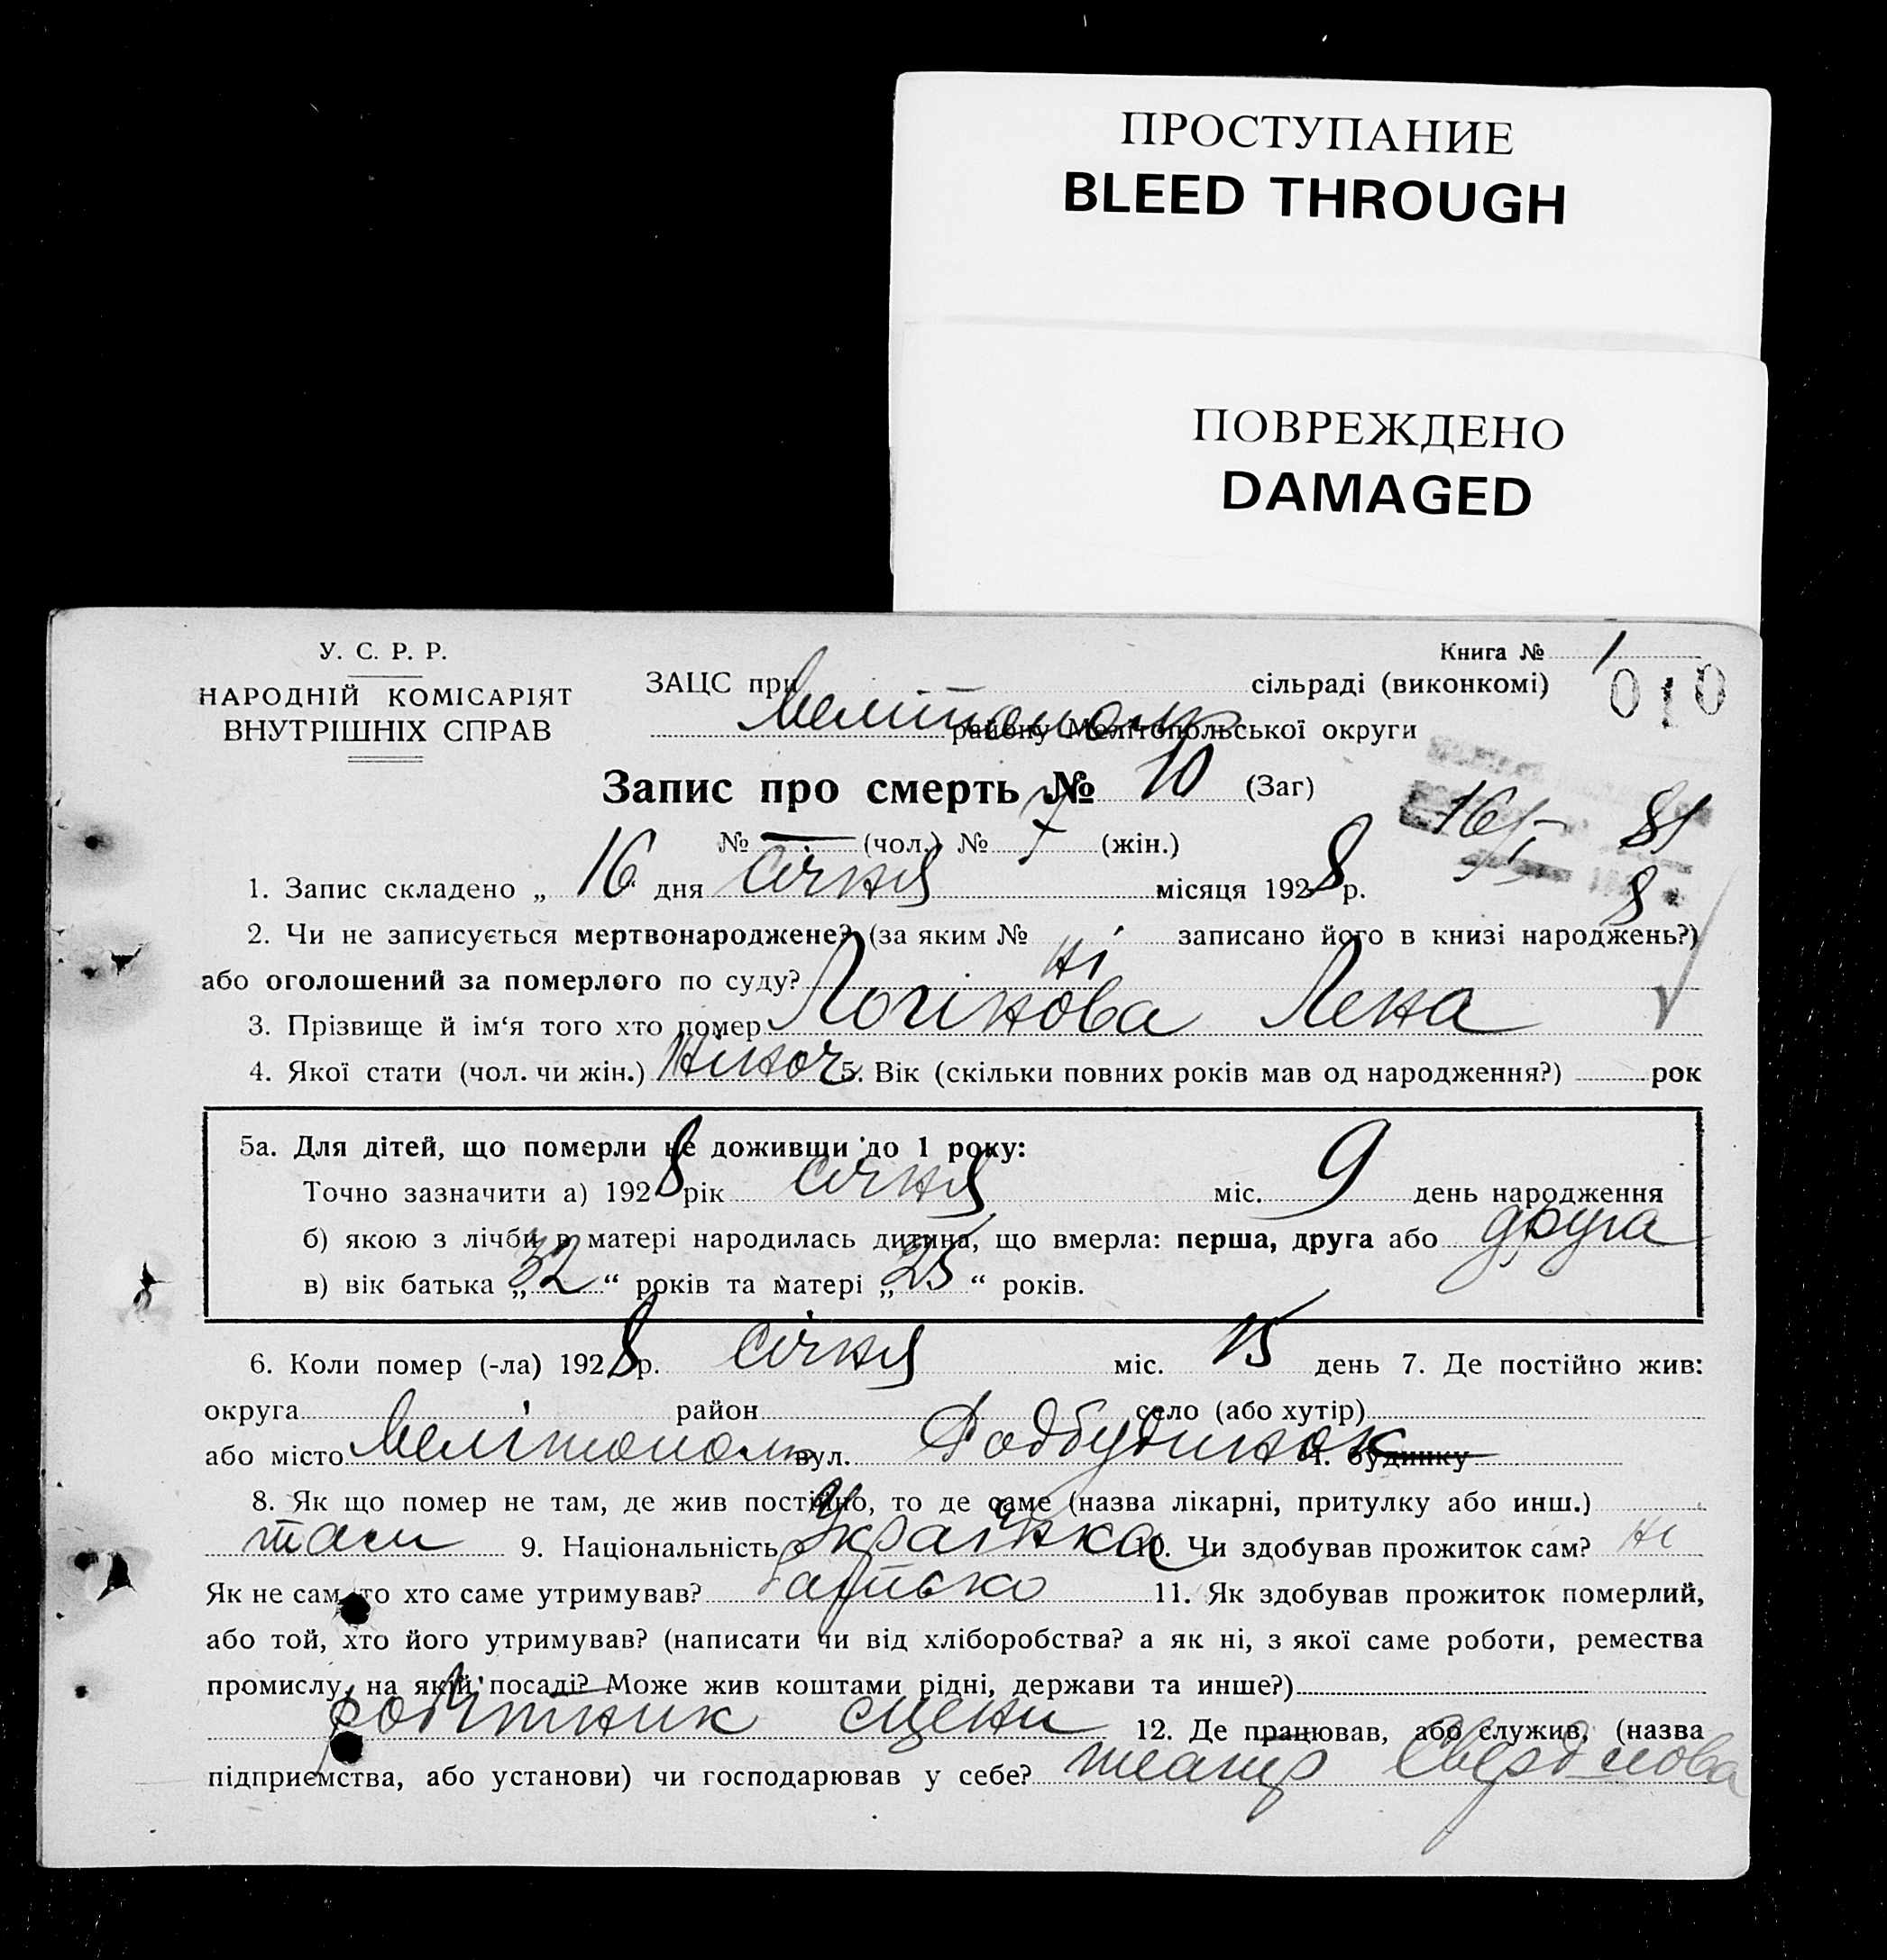 ПРОСТУПАНИЕ
BLEED THROUGH
ПОВРЕЖДЕНО
DAMAGED
У. С. Р. Р.
НАРОДНІЙ КОМІСАРІЯТ
ВНУТРІШНІХ СПРАВ
Книга № 1
010
ЗАЦС при Мелітополь сільраді (виконкомі)
району Мелітопольської округи
Запис про смерть № 10 (Заг)
№ — (чол.) № 7 (жін.)
1. Запис складено „ 16 дня січня місяця 1928 р.
2. Чи не записується мертвонароджене? (за яким № записано його в книзі народжень?)
або оголошений за померлого по суду? ні
3. Прізвище й ім'я того хто помер Логінова Лена
4. Якої стати (чол. чи жін.) жіноч 5. Вік (скільки повних років мав од народження?) рок
5а. Для дітей, що померли не доживши до 1 року:
Точно зазначити а) 1928 рік січня міс. 9 день народження
б) якою з лічби в матері народилась дитина, що вмерла: перша, друга або друга
в) вік батька „ 32 “ років та матері „ 25 “ років.
6. Коли помер (-ла) 1928 р. січня міс. 15 день 7. Де постійно жив:
округа район село (або хутір)
або місто Мелітополь вул. Радбудинок ч. будинку
8. Як що помер не там, де жив постійно, то де саме (назва лікарні, притулку або инш.)
там 9. Національність Українка 10. Чи здобував прожиток сам? ні
Як не сам, то хто саме утримував? батько 11. Як здобував прожиток померлий,
або той, хто його утримував? (написати чи від хліборобства? а як ні, з якої саме роботи, ремества
промислу, на якій посаді? Може жив коштами рідні, держави та инше?)
робітник сцени 12. Де працював, або служив, (назва
підприємства, або установи) чи господарював у себе? театр Свердлова